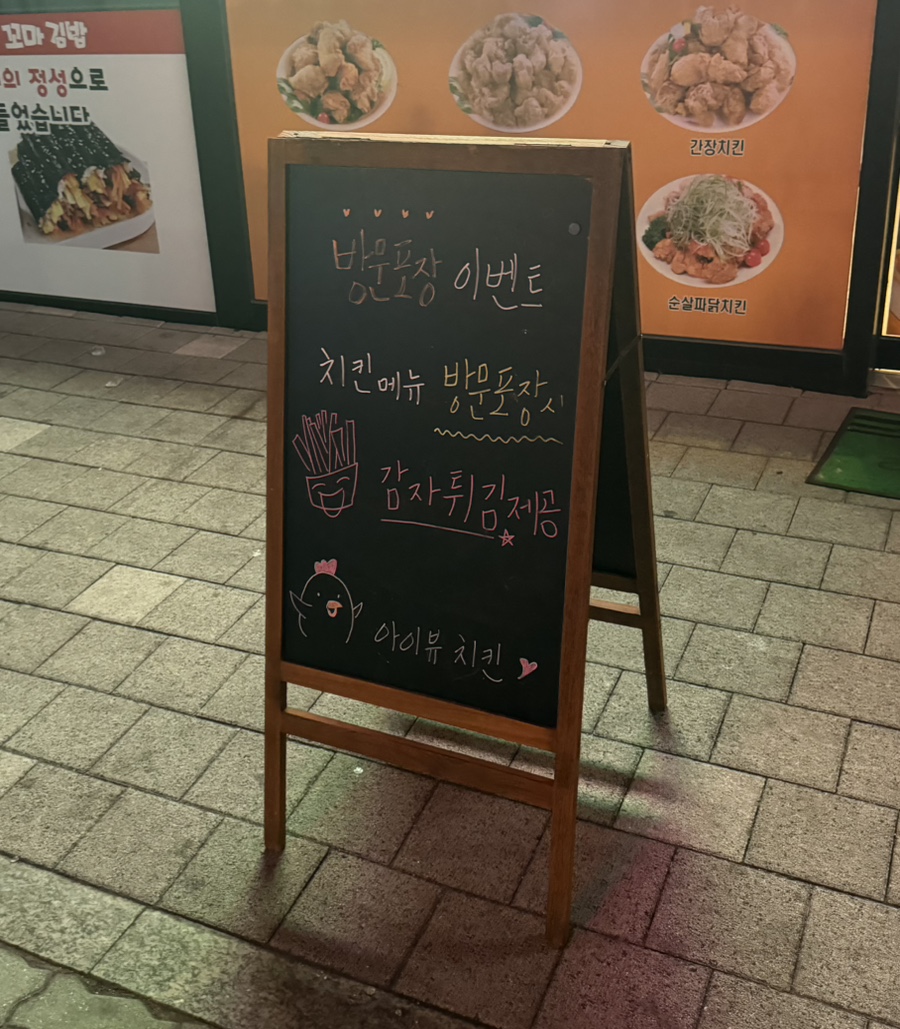 꼬마 김밥
의 정성으로
들었습니다
간장치킨
순살파닭치킨
방문포장 이벤트
치킨메뉴 방문포장시
감자튀김제공
아이뷰 치킨